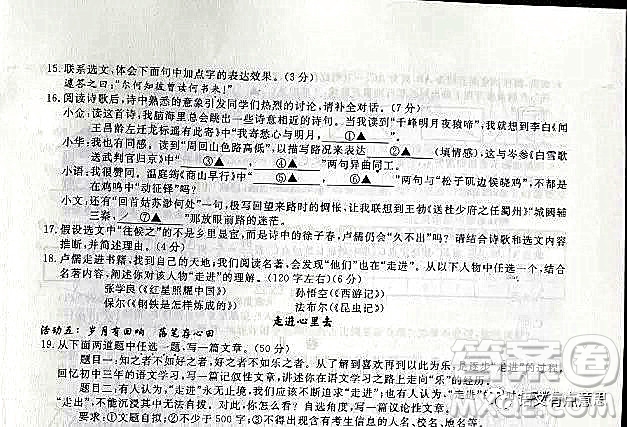 15. 联系选文,体会下面句中加点字的表达效果。(3分)
遽答之曰:“尔何知,彼曾读何书来!”
16. 阅读诗歌后,诗中熟悉的意象引发同学们热烈的讨论,请补全对话。(7分)
小众:读这首诗,我脑海里总会跳出一些诗意相近的诗句。当我读到“千峰明月夜猿啼”,我就想到李白《闻
王昌龄左迁龙标遥有此寄》中“我寄愁心与明月, ①▲ ”
小华:我也有同感,读到“周回山色路高低”,以描写路况来表达 ②▲ (填情感),这与岑参《白雪歌
送武判官归京》中“ ③▲ , ④▲ ”两句异曲同工。
小语:我很赞同。温庭筠《商山早行》中“ ⑤▲ , ⑥▲ ”两句与“松子矶边侯晓鸡”,不都是
在鸡鸣中“动征铎”吗?
小文:还有“回首姑苏渺何处”一句,极写回望来路时的惆怅,让我联想到王勃《送杜少府之任蜀州》“城阙辅
三秦, ⑦▲ ”那放眼前路的迷茫。
17. 假设选文中“往候之”的不是乡里显宦,而是诗中的徐子春,卢儒仍会“久不出”吗?请结合诗歌和文言内容
推断,并简述理由。(4分)
18. 卢儒走进书籍,找到自己的天地;我们阅读名著,会发现“他们”也在“走进”。从以下人物中任选一个,结合
名著内容,阐述你对该人物“走进”的理解。(120字左右)(6分)
张学良《红星照耀中国》 孙悟空《西游记》
保尔《钢铁是怎样炼成的》 法布尔《昆虫记》
走进心里去
活动五:岁月有回响 落笔存心田
19. 从下面两道题中任选一题,写一篇文章。(50分)
题目一:知之者不如好之者,好之者不如乐之者。从了解到喜欢再到以此为乐,是逐步“走进”的过程,
回忆初中三年的语文学习,写一篇记叙性文章,讲述你在语文学习之路上走向“乐”的经历。
题目二:有人认为,“走进”永无止境,我们应不断深入下去;也有人认为,“走进”
走出”,不能沉浸其中无法自拔。对此,你怎么看?自选角度,写一篇议论性文章。
要求:①文题自拟;②不少于500字;③不得出现含有考生信息的人名、校名、地名等。